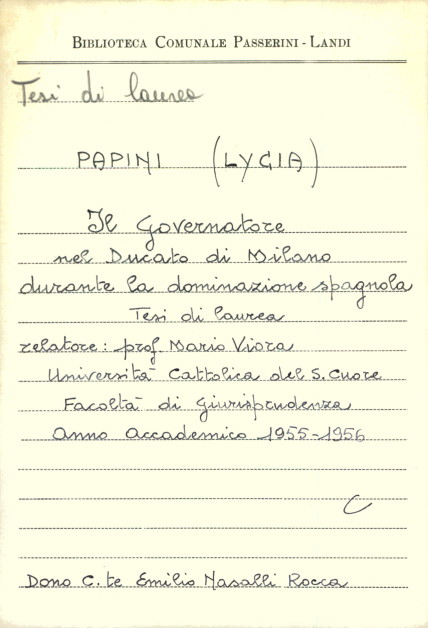 BIBLIOTECA COMUNALE PASSERINI - LANDI
Tesi di laurea
PAPINI (LYGIA)
Il Governatore
nel Ducato di Milano
durante la dominazione spagnola
Tesi di laurea
relatore: prof. Mario Viora
Università Cattolica del S. Cuore
Facoltà di Giurisprudenza
Anno Accademico 1955-1956
C
Dono C.te Emilio Nasalli Rocca